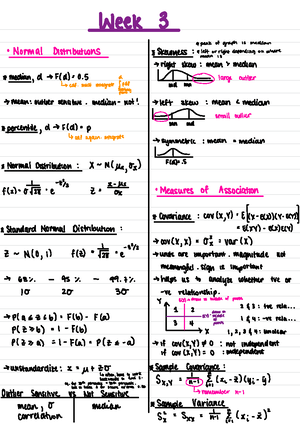 Week 3
• Normal Distributions
* median, d → F(d) = 0.5
→ mean: outlier sensitive . median - not!
* percentile, d → F(d) = p
* Normal Distribution : X ~ N(μx, σx)
f(x) = 1/σ√2π · e^-z²/2 z = x-μx/σx
* Standard Normal Distribution :
Z ~ N(0, 1) f(z) = 1/√2π e^-z²/2
→ 68% - 95% - 99.7%
1σ 2σ 3σ
→ P(a ≤ z ≤ b) = F(b) - F(a)
P(z ≥ b) = 1 - F(b)
P(z ≥ a) = 1 - F(a) = P(z ≤ -a)
→ unstandardize : x = μ + zσ
Outlier Sensitive vs Not Sensitive
mean, σ median
correlation
* peak of graph is median
* Skewness :
→ right skew : mean > median
large outlier
md mn
→ left skew : mean < median
small outlier
mn md
→ symmetric : mean = median
F(d) = 0.5
• Measures of Association
* Covariance : cov(X,Y) = E[(X - E(X))(Y - E(Y))]
= E(XY) - E(X)E(Y)
→ cov(X,X) = σx² = var(X)
→ units are important . magnitude not
meaningful . sign is important
→ helps us to analyze whether +ve or
-ve relationship.
Y
2 1
3 4
X
→ if cov(X,Y) ≠ 0 : not independent
if cov(X,Y) = 0 : independent
* Sample Covariance :
Sx,y = 1/n-1 Σ (xi - x̄)(yi - ȳ)
→ remember n-1
* Sample Variance
Sx² = Sxx = 1/n-1 Σ (xi - x̄)²